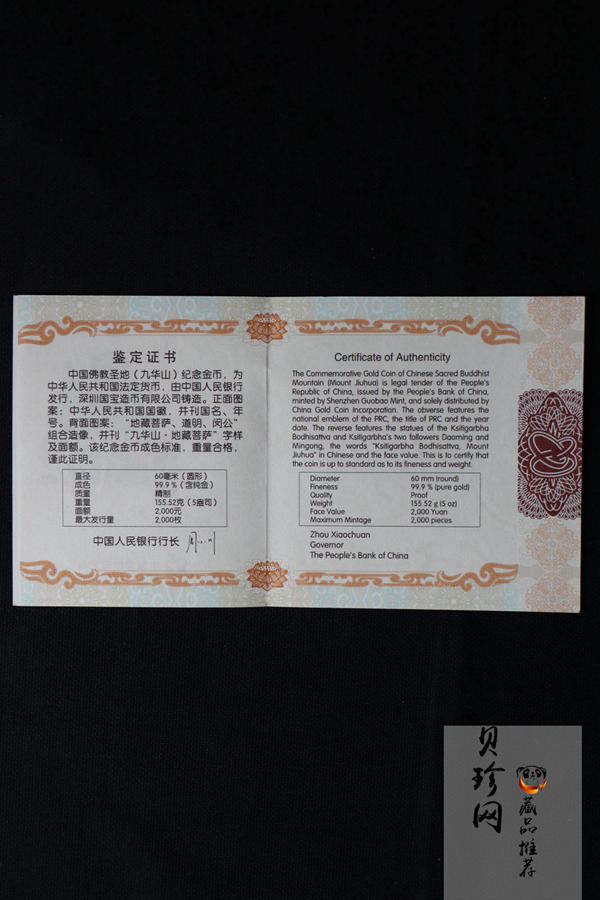 鉴定证书
中国佛教圣地（九华山）纪念金币，为
中华人民共和国法定货币，由中国人民银行
发行，深圳国宝造币有限公司铸造。正面图
案：中华人民共和国国徽，井刊国名、年
号。背面图案：“地藏菩萨、道明、闵公”
组合造像，井刊“九华山·地藏菩萨”字样
及面额。该纪念金币成色标准，重量合格，
谨此证明。
直径 60毫米（圆形）
成色 99.9％（含纯金）
质量 精制
重量 155.52克（5盎司）
面额 2,000元
最大发行量 2,000枚
中国人民银行行长
Certificate of Authenticity
The Commemorative Gold Coin of Chinese Sacred Buddhist
Mountain (Mount Jiuhua) is legal tender of the People's
Republic of China, issued by the People's Bank of China,
minted by Shenzhen Guobao Mint, and solely distributed by
China Gold Coin Incorporation. The obverse features the
national emblem of the PRC, the title of PRC and the year
date. The reverse features the statues of the Ksitigarbha
Bodhisattva and Ksitigarbha's two followers Daoming and
Mingong, the words "Ksitigarbha Bodhisattva, Mount
Jiuhua" in Chinese and the face value. This is to certify that
the coin is up to standard as to its fineness and weight.
Diameter 60 mm (round)
Fineness 99.9 % (pure gold)
Quality Proof
Weight 155.52 g (5 oz)
Face Value 2,000 Yuan
Maximum Mintage 2,000 pieces
Zhou Xiaochuan
Governor
The People's Bank of China
贝珍网
藏品推荐